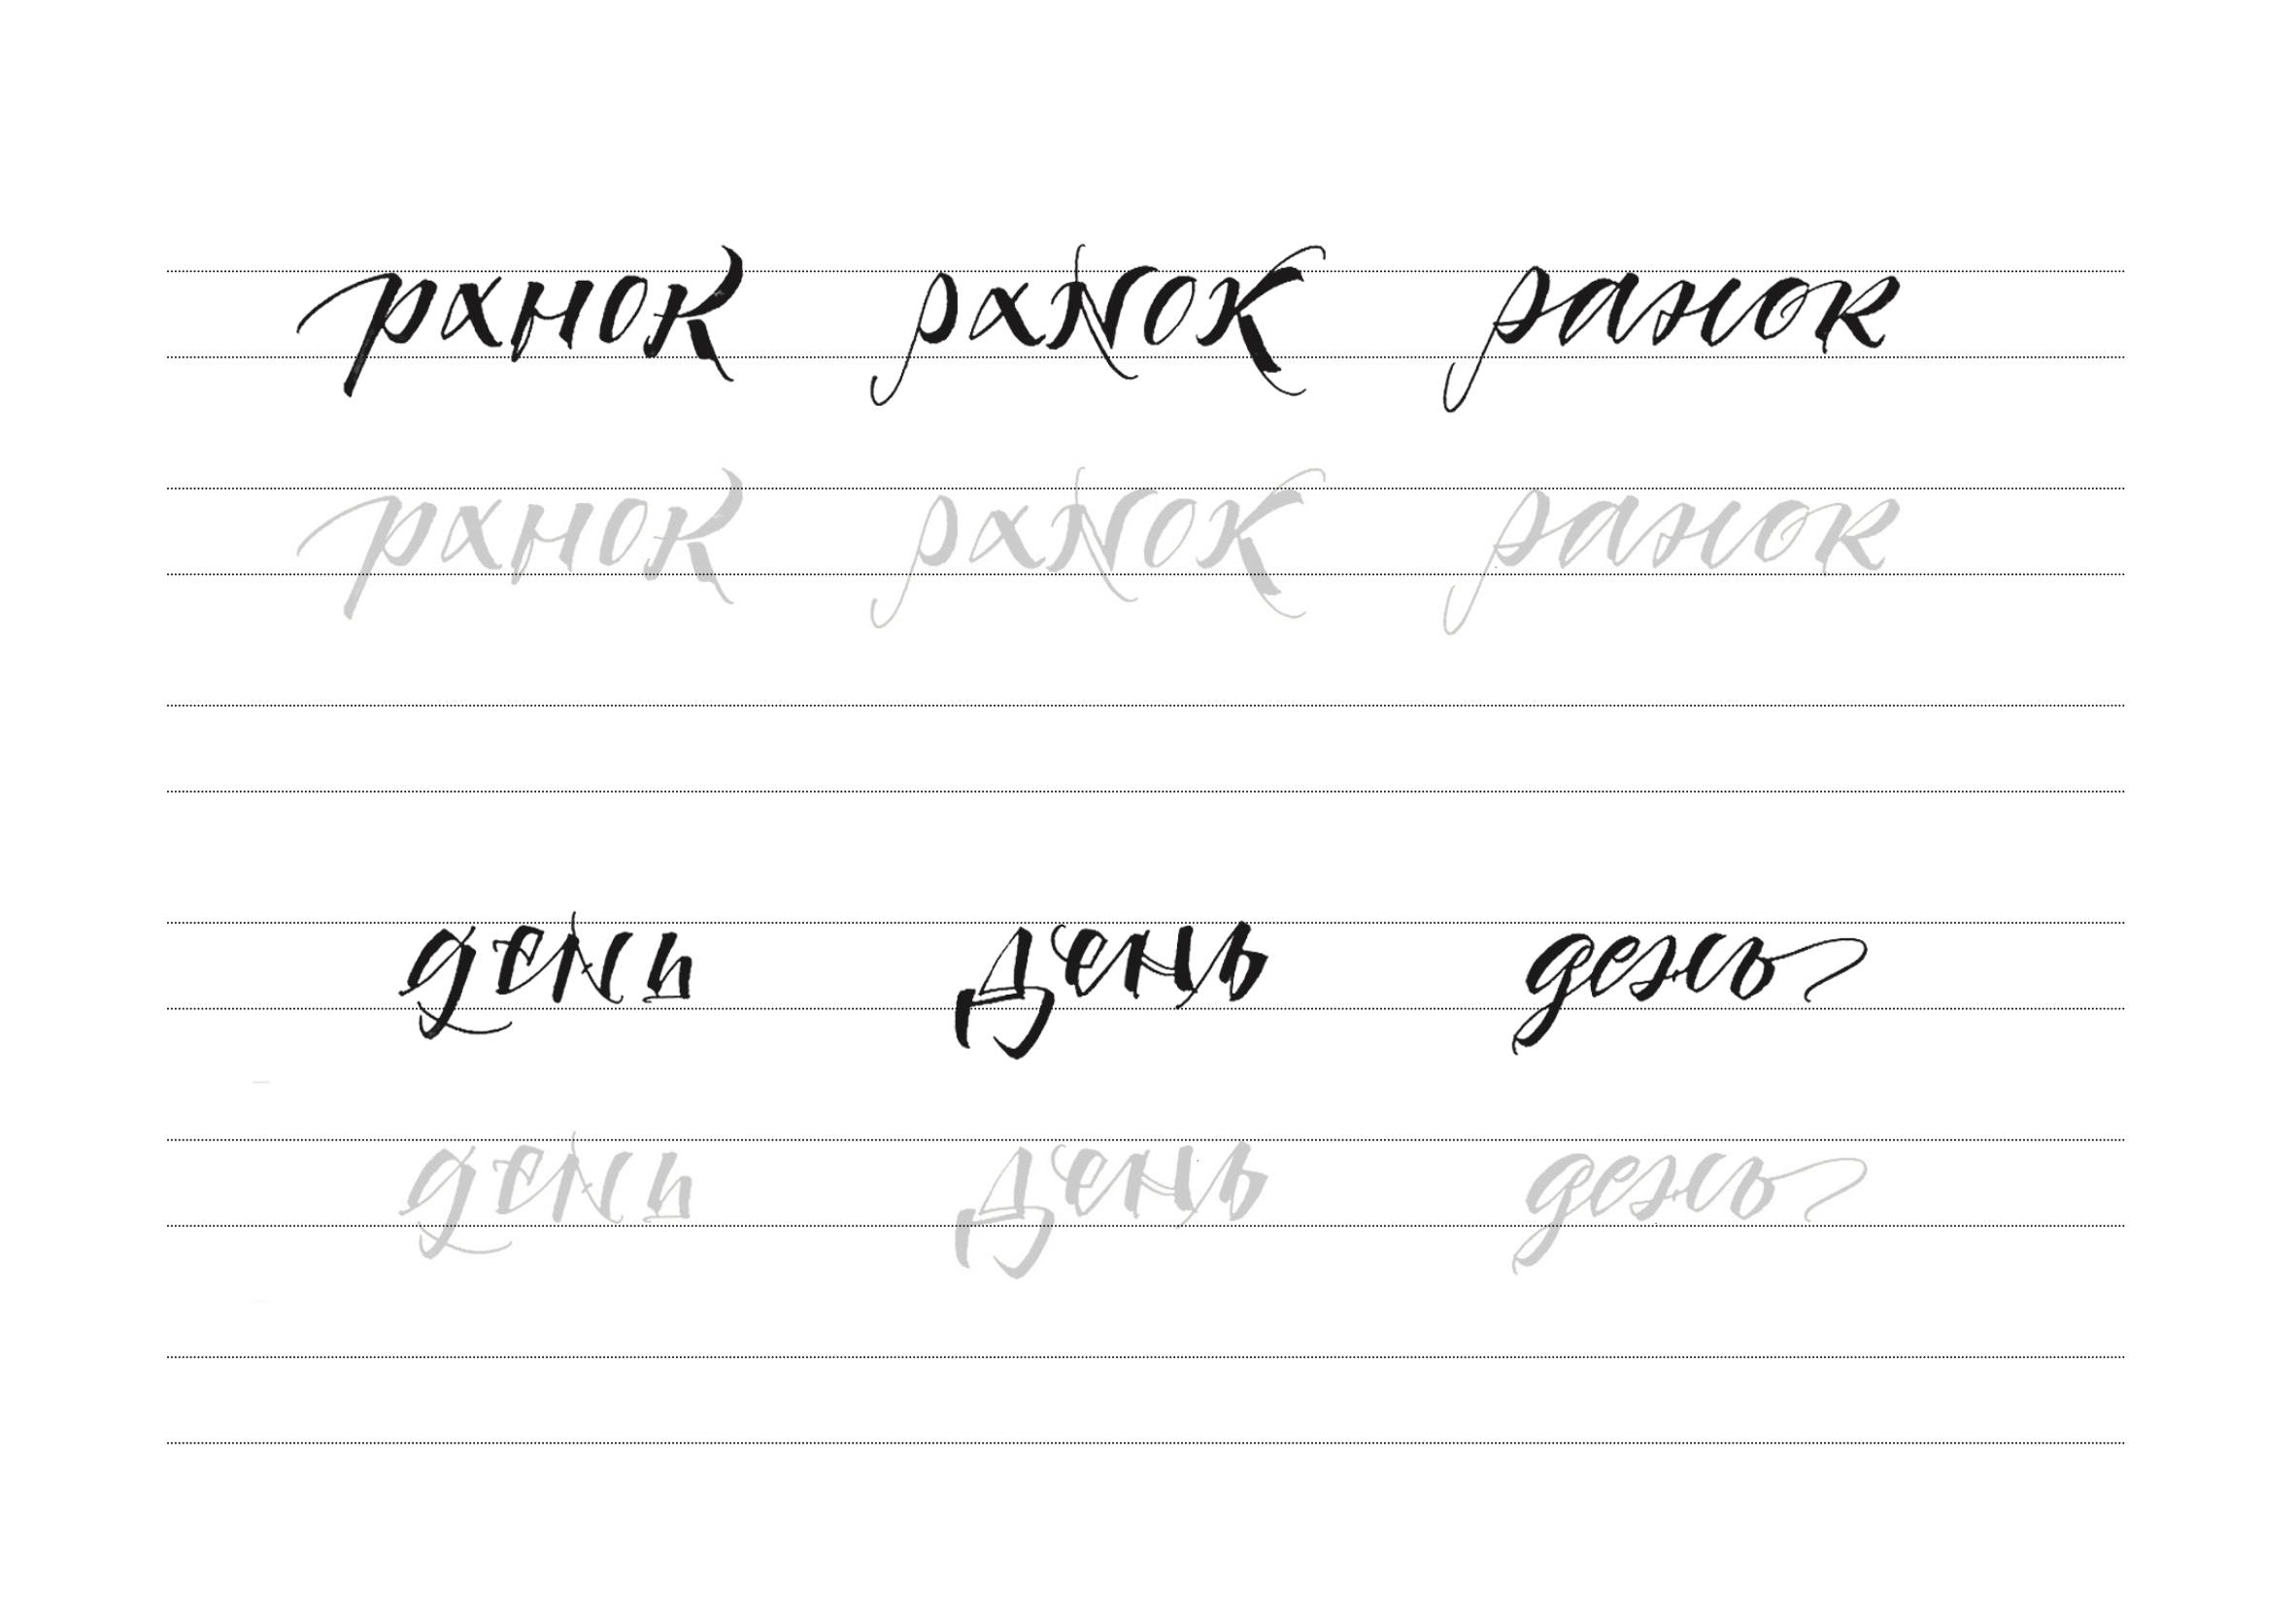 ранок ранок ранок
ранок ранок ранок
день день день
день день день